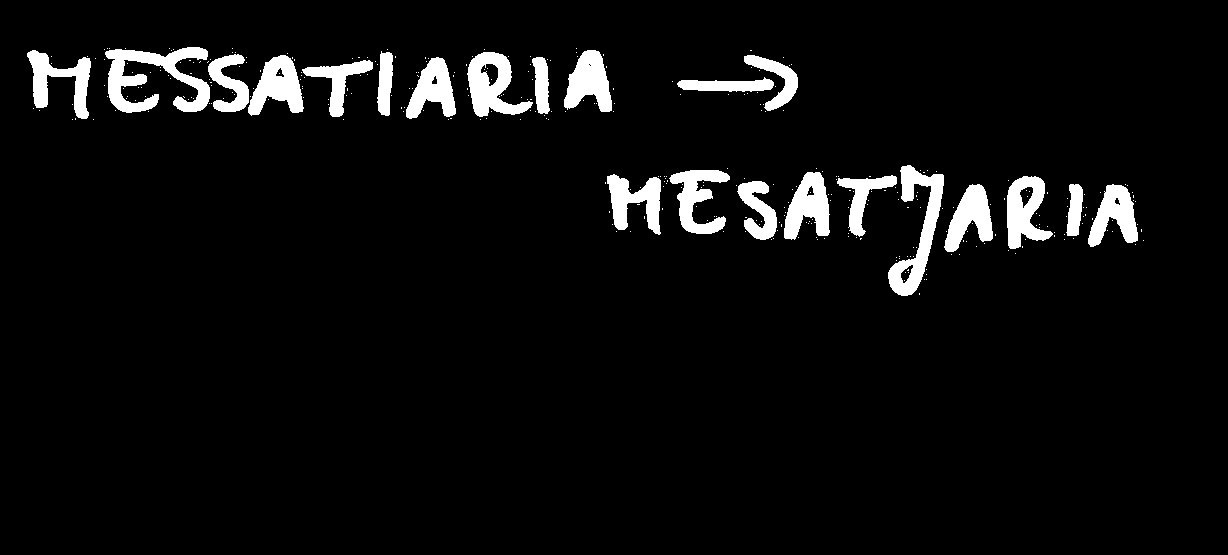 MESSATIARIA →
MESATJARIA